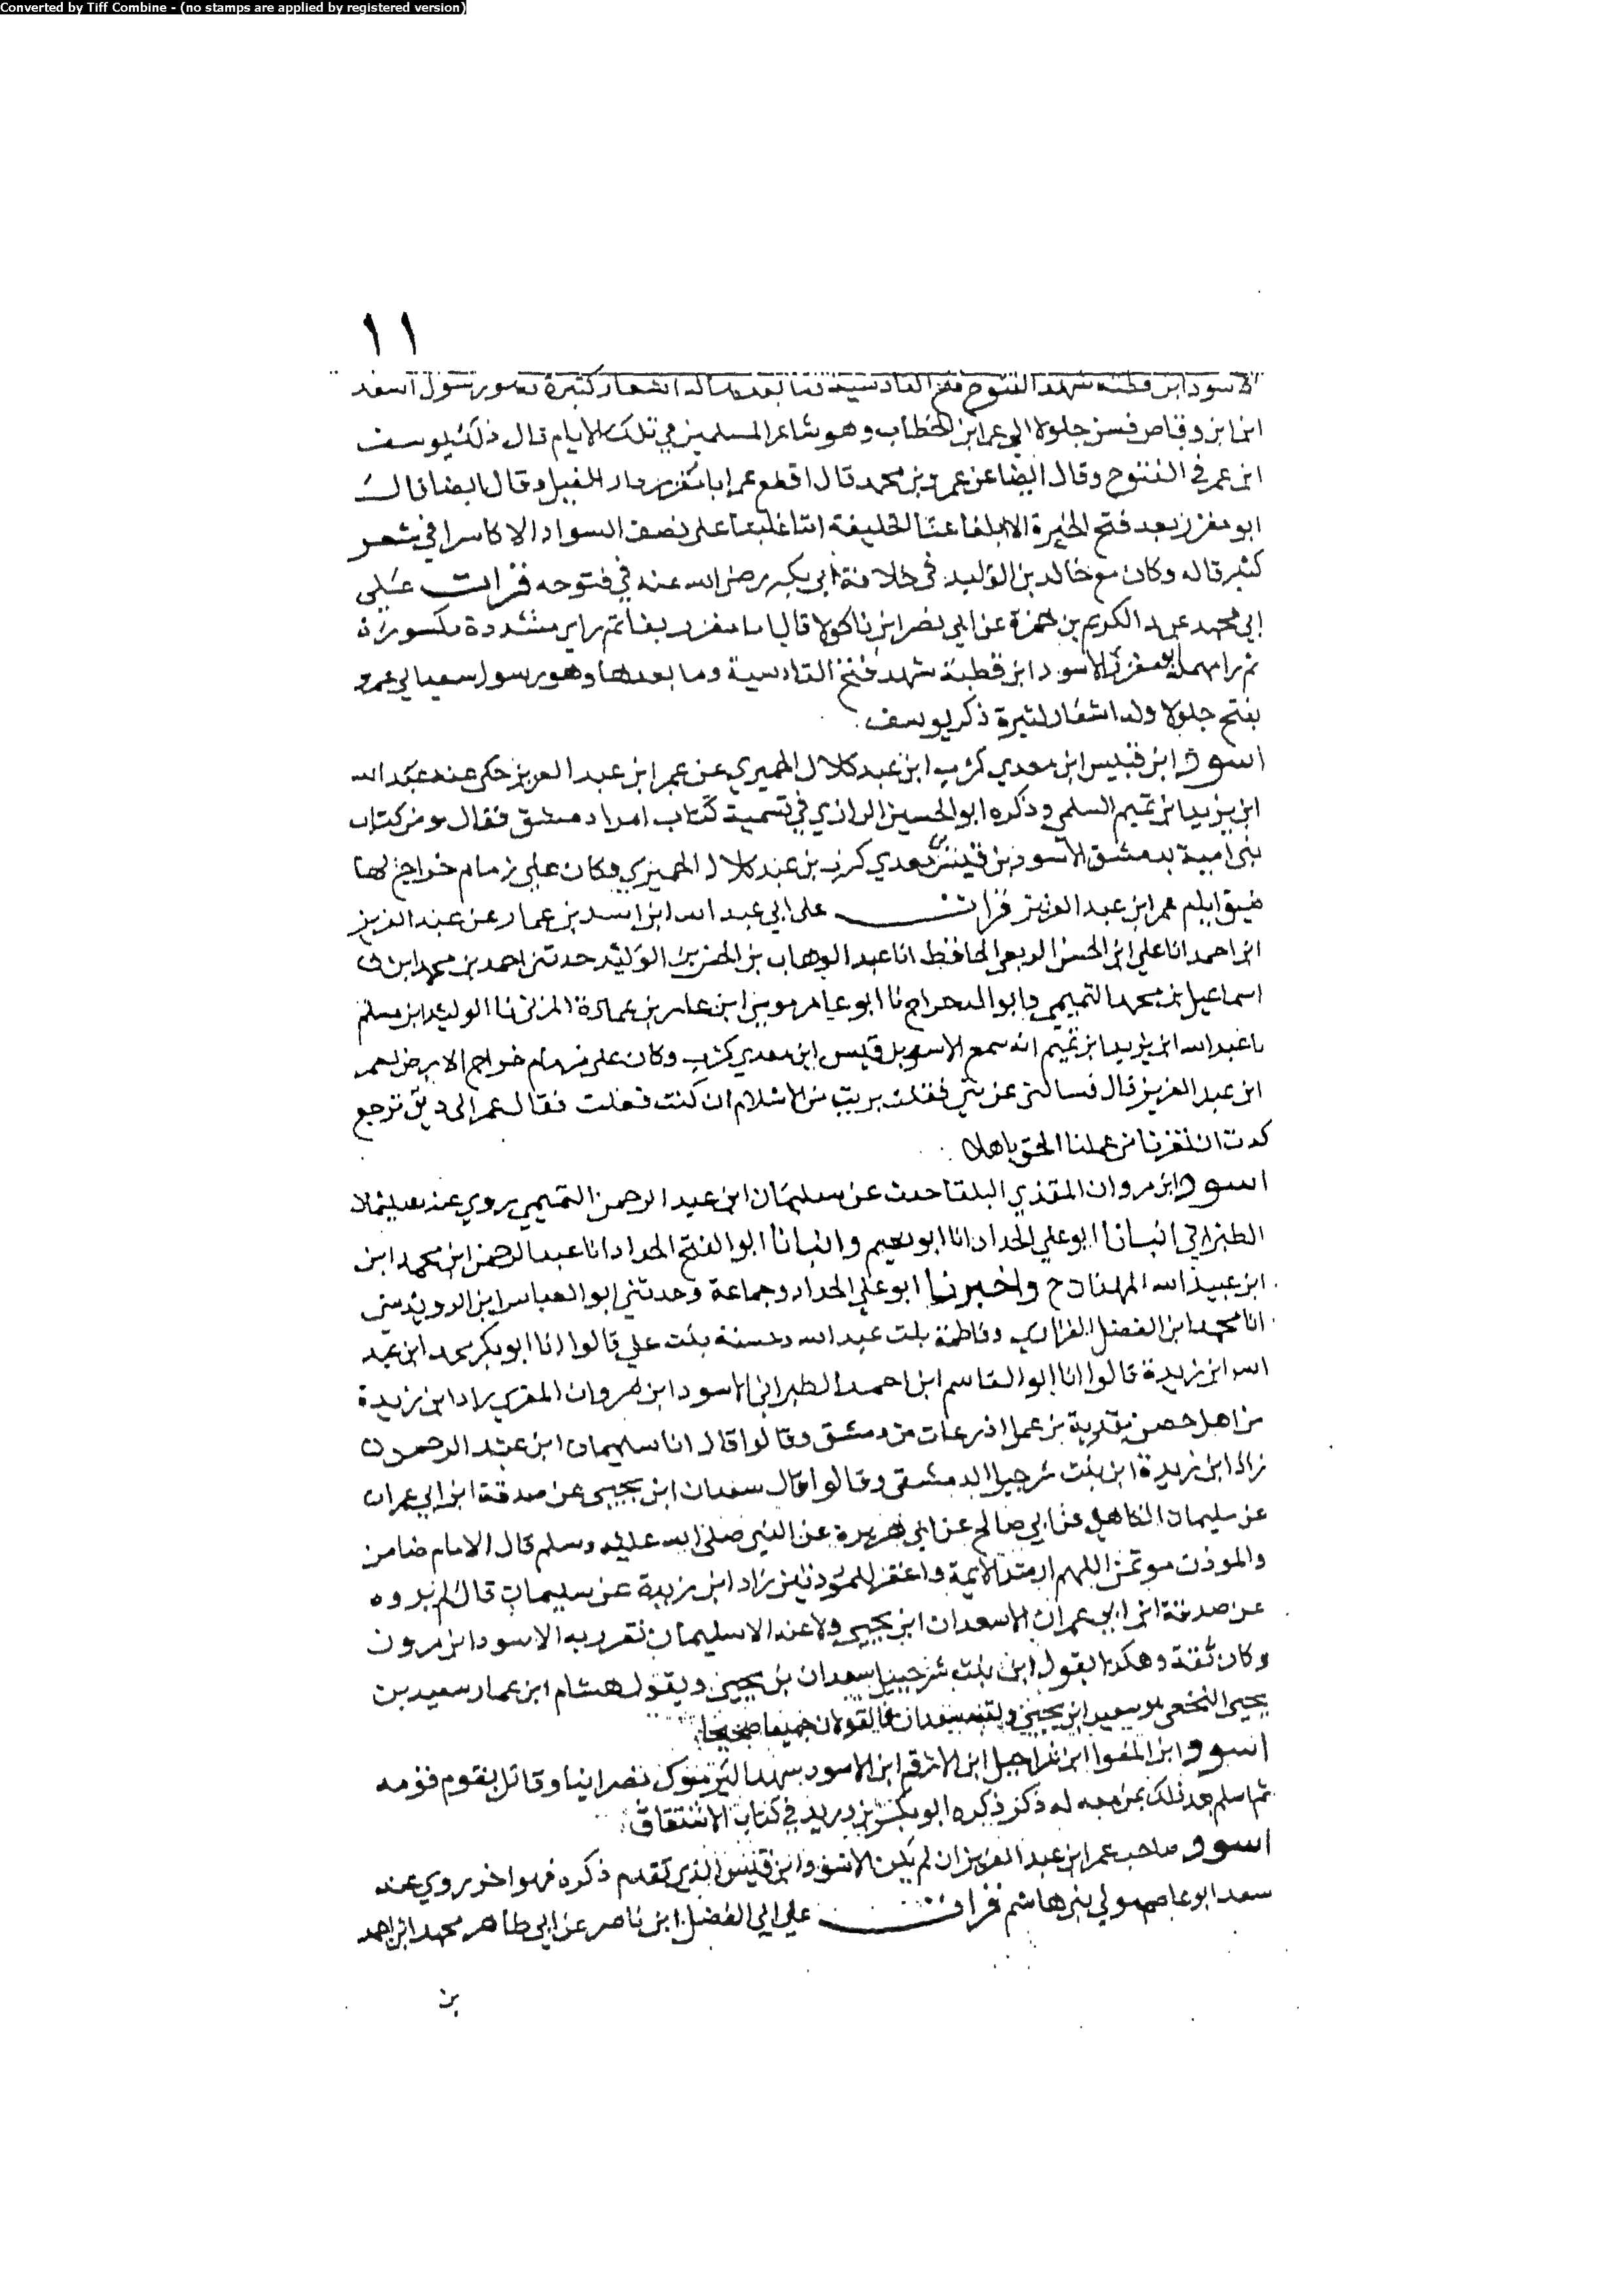 Converted by Tiff Combine - (no stamps are applied by registered version)
١١
الاسود ابن قطبة شهد الفتوح فتح القادسية فما بعدها له اشعار كثيرة وهو رسول سعد
ابن ابن وقاص جلولا الى عمر ابن الخطاب وهو شاعر المسلمين في تلك الايام قال ذلك يوسف
ابن عمر في الفتوح وقال ايضا عن عمرو بن محمد قال اقطع عمر ابا مفزر دار الفيل وقال ايضا قال
ابو مفزر بعد فتح الحيرة الا ابلغا عنا الخليفة اننا غلبنا على نصف السواد الاكاسرا في شعر
كثير قاله وكان مع خالد بن الوليد في خلافة ابي بكر رضي الله عنه في فتوحه قرات على
ابي محمد عبد الكريم بن حمزة عن ابي نصر ابن ماكولا قال اما مفزر بفا ثم زاي مشددة مكسورة
ثم را مهملة ابو مفزر الاسود ابن قطبة شهد فتح القادسية وما بعدها وهو رسول سعد الى عمر
بفتح جلولا وله اشعار كثيرة ذكر يوسف
اسود ابن قبيس ابن معدي كرب ابن عبد كلال الحميري عن عمر ابن عبد العزيز حكى عنه عبد الله
ابن يزيد ابن تميم السلمي وذكره ابو الحسين الرازي في تسمية كتاب امراء دمشق فقال ومن كتاب
بني امية بدمشق الاسود بن قبيس بن معدي كرب بن عبد كلال الحميري وكان على زمام خراجها
في ايام عمر ابن عبد العزيز قرات على ابي عبد الله ابن اسد بن عمار عن عبد العزيز
ابن احمد انا علي ابن الحسن الربعي الحافظ انا عبد الوهاب بن الحسن بن الوليد حدثني احمد بن محمد ابن
اسماعيل بن محمد التميمي وابو الدحداح نا ابو عامر موسى ابن عامر بن عمارة المزني نا الوليد ابن مسلم
نا عبد الله ابن يزيد ابن تميم انه سمع الاسود بن قبيس ابن معدي كرب وكان على زمام خراج الارض لعمر
ابن عبد العزيز قال فسالني عن شي فقلت بريت من الاسلام ان كنت فعلت فقال عمر الى دين ترجع
كدت ان تغرنا من عملنا الحق باهلك
اسود ابن مروان المقدي البلقا حدث عن سليمان ابن عبد الرحمن التميمي روي عنه سليمان
الطبراني انبانا ابو علي الحداد انا ابو نعيم وانبانا ابو الفتح الحداد انا عبد الرحمن ابن محمد ابن
ابن عبيد الله الهمذاني ح واخبرنا ابو علي الحداد وجماعة وحدثني ابو العباس ابن الرويدشتي
انا محمد ابن الفضل القزاز وفاطمة بنت عبد الله وحسنة بنت علي قالوا انا ابو بكر محمد ابن عبد
الله ابن زيدة قالوا انا ابو القاسم ابن احمد الطبراني الاسود ابن مروان المقدي زاد ابن زيدة
من اهل حصن بقدية من عمل اذرعات من دمشق وقالوا قال انا سليمان ابن عبد الرحمن
زاد ابن زيدة ابن بنت شرحبيل الدمشقي وقالوا قال سعدان ابن يحيى عن صدقة ابن ابي عمران
عن سليمان الكاهلي عن ابي صالح عن ابي هريرة عن النبي صلى الله عليه وسلم قال الامام ضامن
والموذن موتمن اللهم ارشد الايمة واغفر للموذنين زاد ابن زيدة عن سليمان قال لم يروه
عن صدقة ابن ابي عمران الا سعدان ابن يحيى ولا عنه الا سليمان تفرد به الاسود ابن مرون
وكان ثقة وهكذا يقول ابن بنت شرحبيل سعدان بن يحيى ويقول هشام ابن عمار سعيد بن
يحيى اللخمي هو سعيد ابن يحيى ولقبه سعدان فالقولان جميعا صحيحا
اسود ابن المغوا ابن شراحيل ابن الارقم ابن الاسود شهد اليرموك نصرانيا وقاتل بقوم قومه
ثم اسلم بعد ذلك ذكره ابو بكر بن دريد في كتاب الاشتقاق
اسود صاحب عمر ابن عبد العزيز ان لم يكن الاسود ابن قبيس الذي تقدم ذكره فهو اخر روي عنه
سعد ابو عاصم مولي بني هاشم قرات على ابي الفضل ابن ناصر عن ابي طاهر محمد ابن احمد
بن